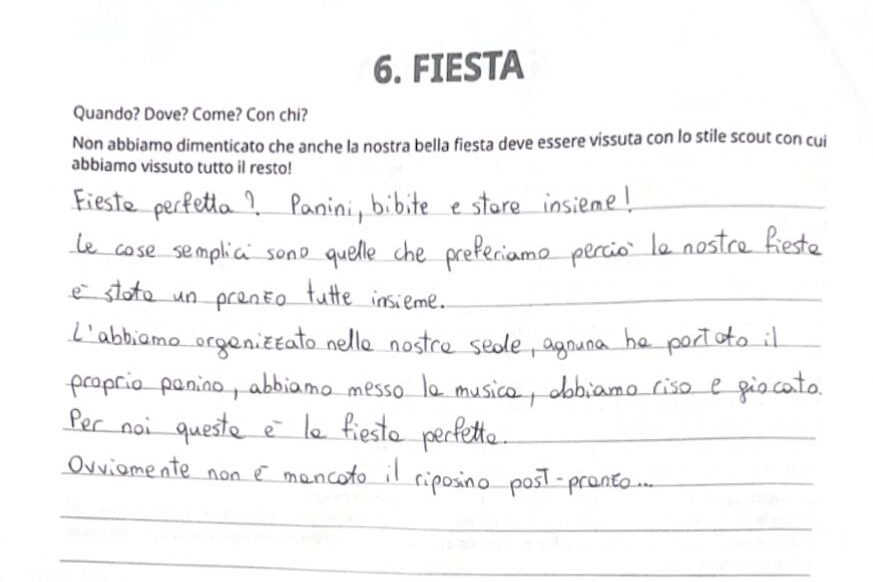 6. FIESTA
Quando? Dove? Come? Con chi?
Non abbiamo dimenticato che anche la nostra bella fiesta deve essere vissuta con lo stile scout con cui
abbiamo vissuto tutto il resto!
Fiesta perfetta? Panini, bibite e stare insieme!
Le cose semplici sono quelle che preferiamo perciò la nostra fiesta
è stata un pranzo tutte insieme.
L'abbiamo organizzato nella nostra sede, agnuna ha portato il
proprio panino, abbiamo messo la musica, abbiamo riso e giocato.
Per noi questa è la fiesta perfetta.
Ovviamente non è mancato il riposino post-pranzo...